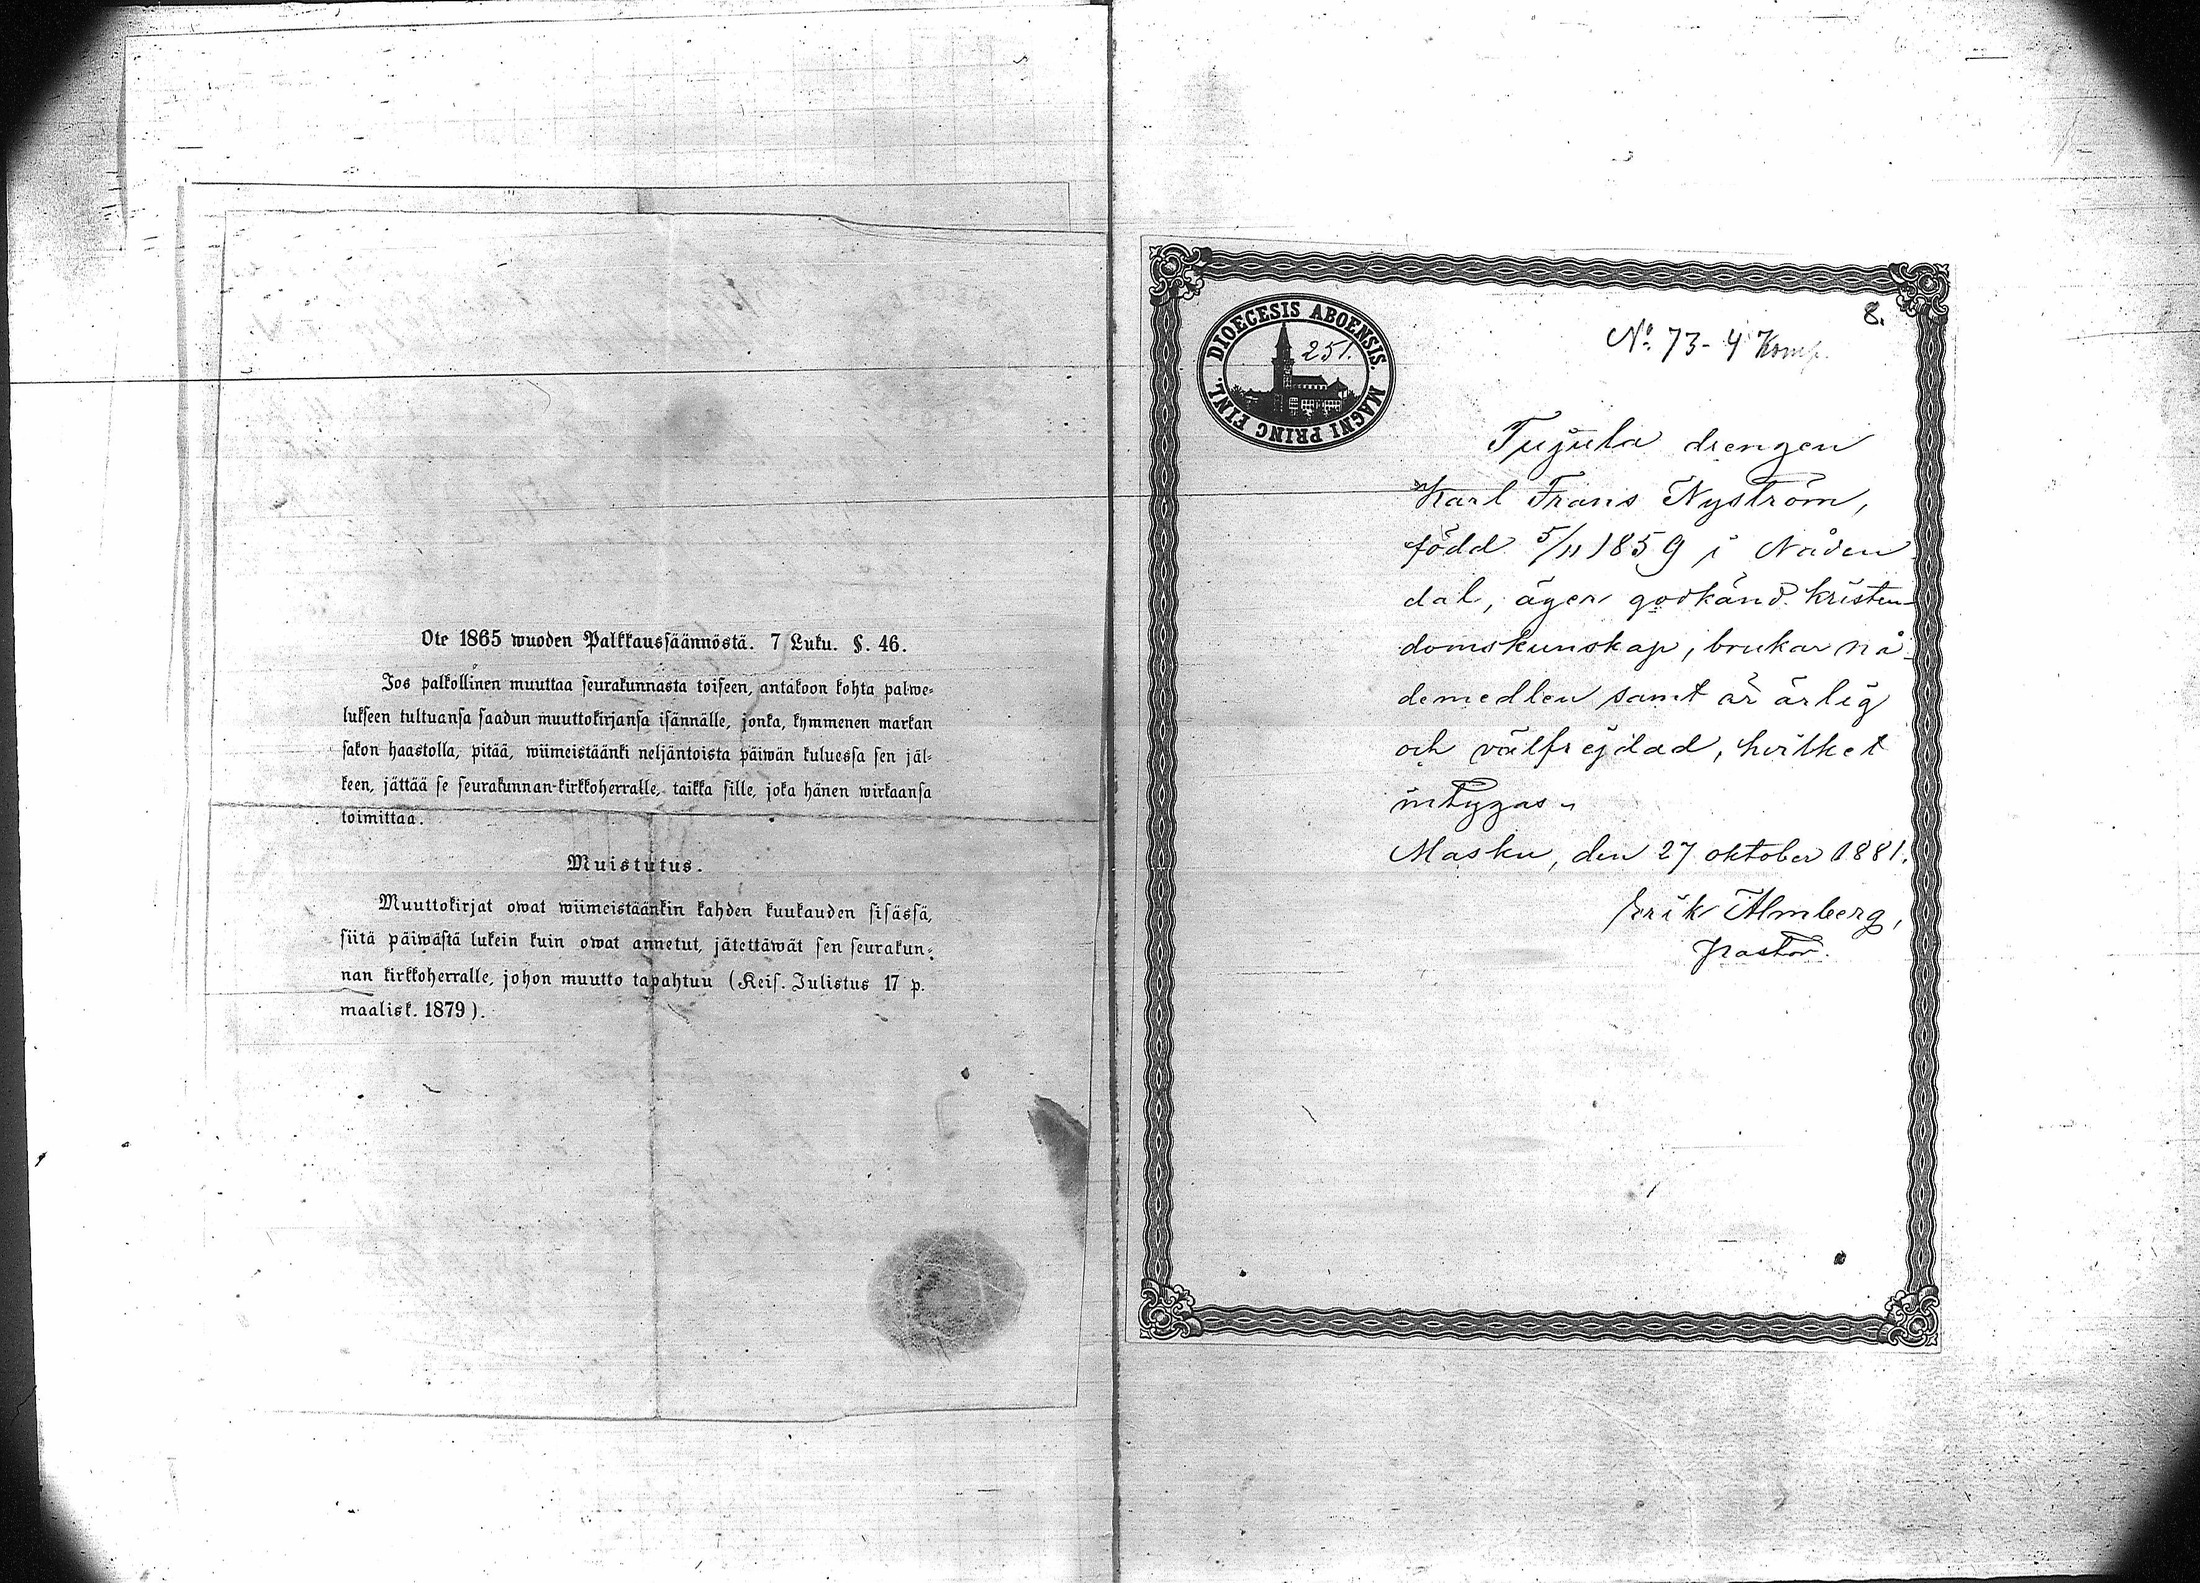 Ote 1865 wuoden Palkkaussäännöstä. 7 Luku. §. 46.
Jos palkollinen muuttaa seurakunnasta toiseen, antakoon kohta palwe-
lukseen tultuansa saadun muuttokirjansa isännälle, jonka, kymmenen markan
sakon haastolla, pitää, wiimeistäänki neljäntoista päiwän kuluessa sen jäl-
keen, jättää se seurakunnan kirkkoherralle, taikka sille, joka hänen wirkaansa
toimittaa.
Muistutus.
Muuttokirjat owat wiimeistäänkin kahden kuukauden sisässä,
siitä päiwästä lukein kuin owat annetut, jätettäwät sen seurakun-
nan kirkkoherralle, johon muutto tapahtuu (Keis. Julistus 17 p.
maalisk. 1879).
8.
No: 73 - 4 Komp.
DIOECESIS ABOENSIS. MAGNI PRINC FINL.
251.
drengen
Karl Frans Nyström,
född 5/11 1859 i Nåden
dal, äger godkänd kristen-
domskunskap, brukar nå-
demedlen samt är ärlig
och välfrejdad, hvilket
intygas.
Masku, den 27 oktober 1881.
Erik Almberg,
pastor.